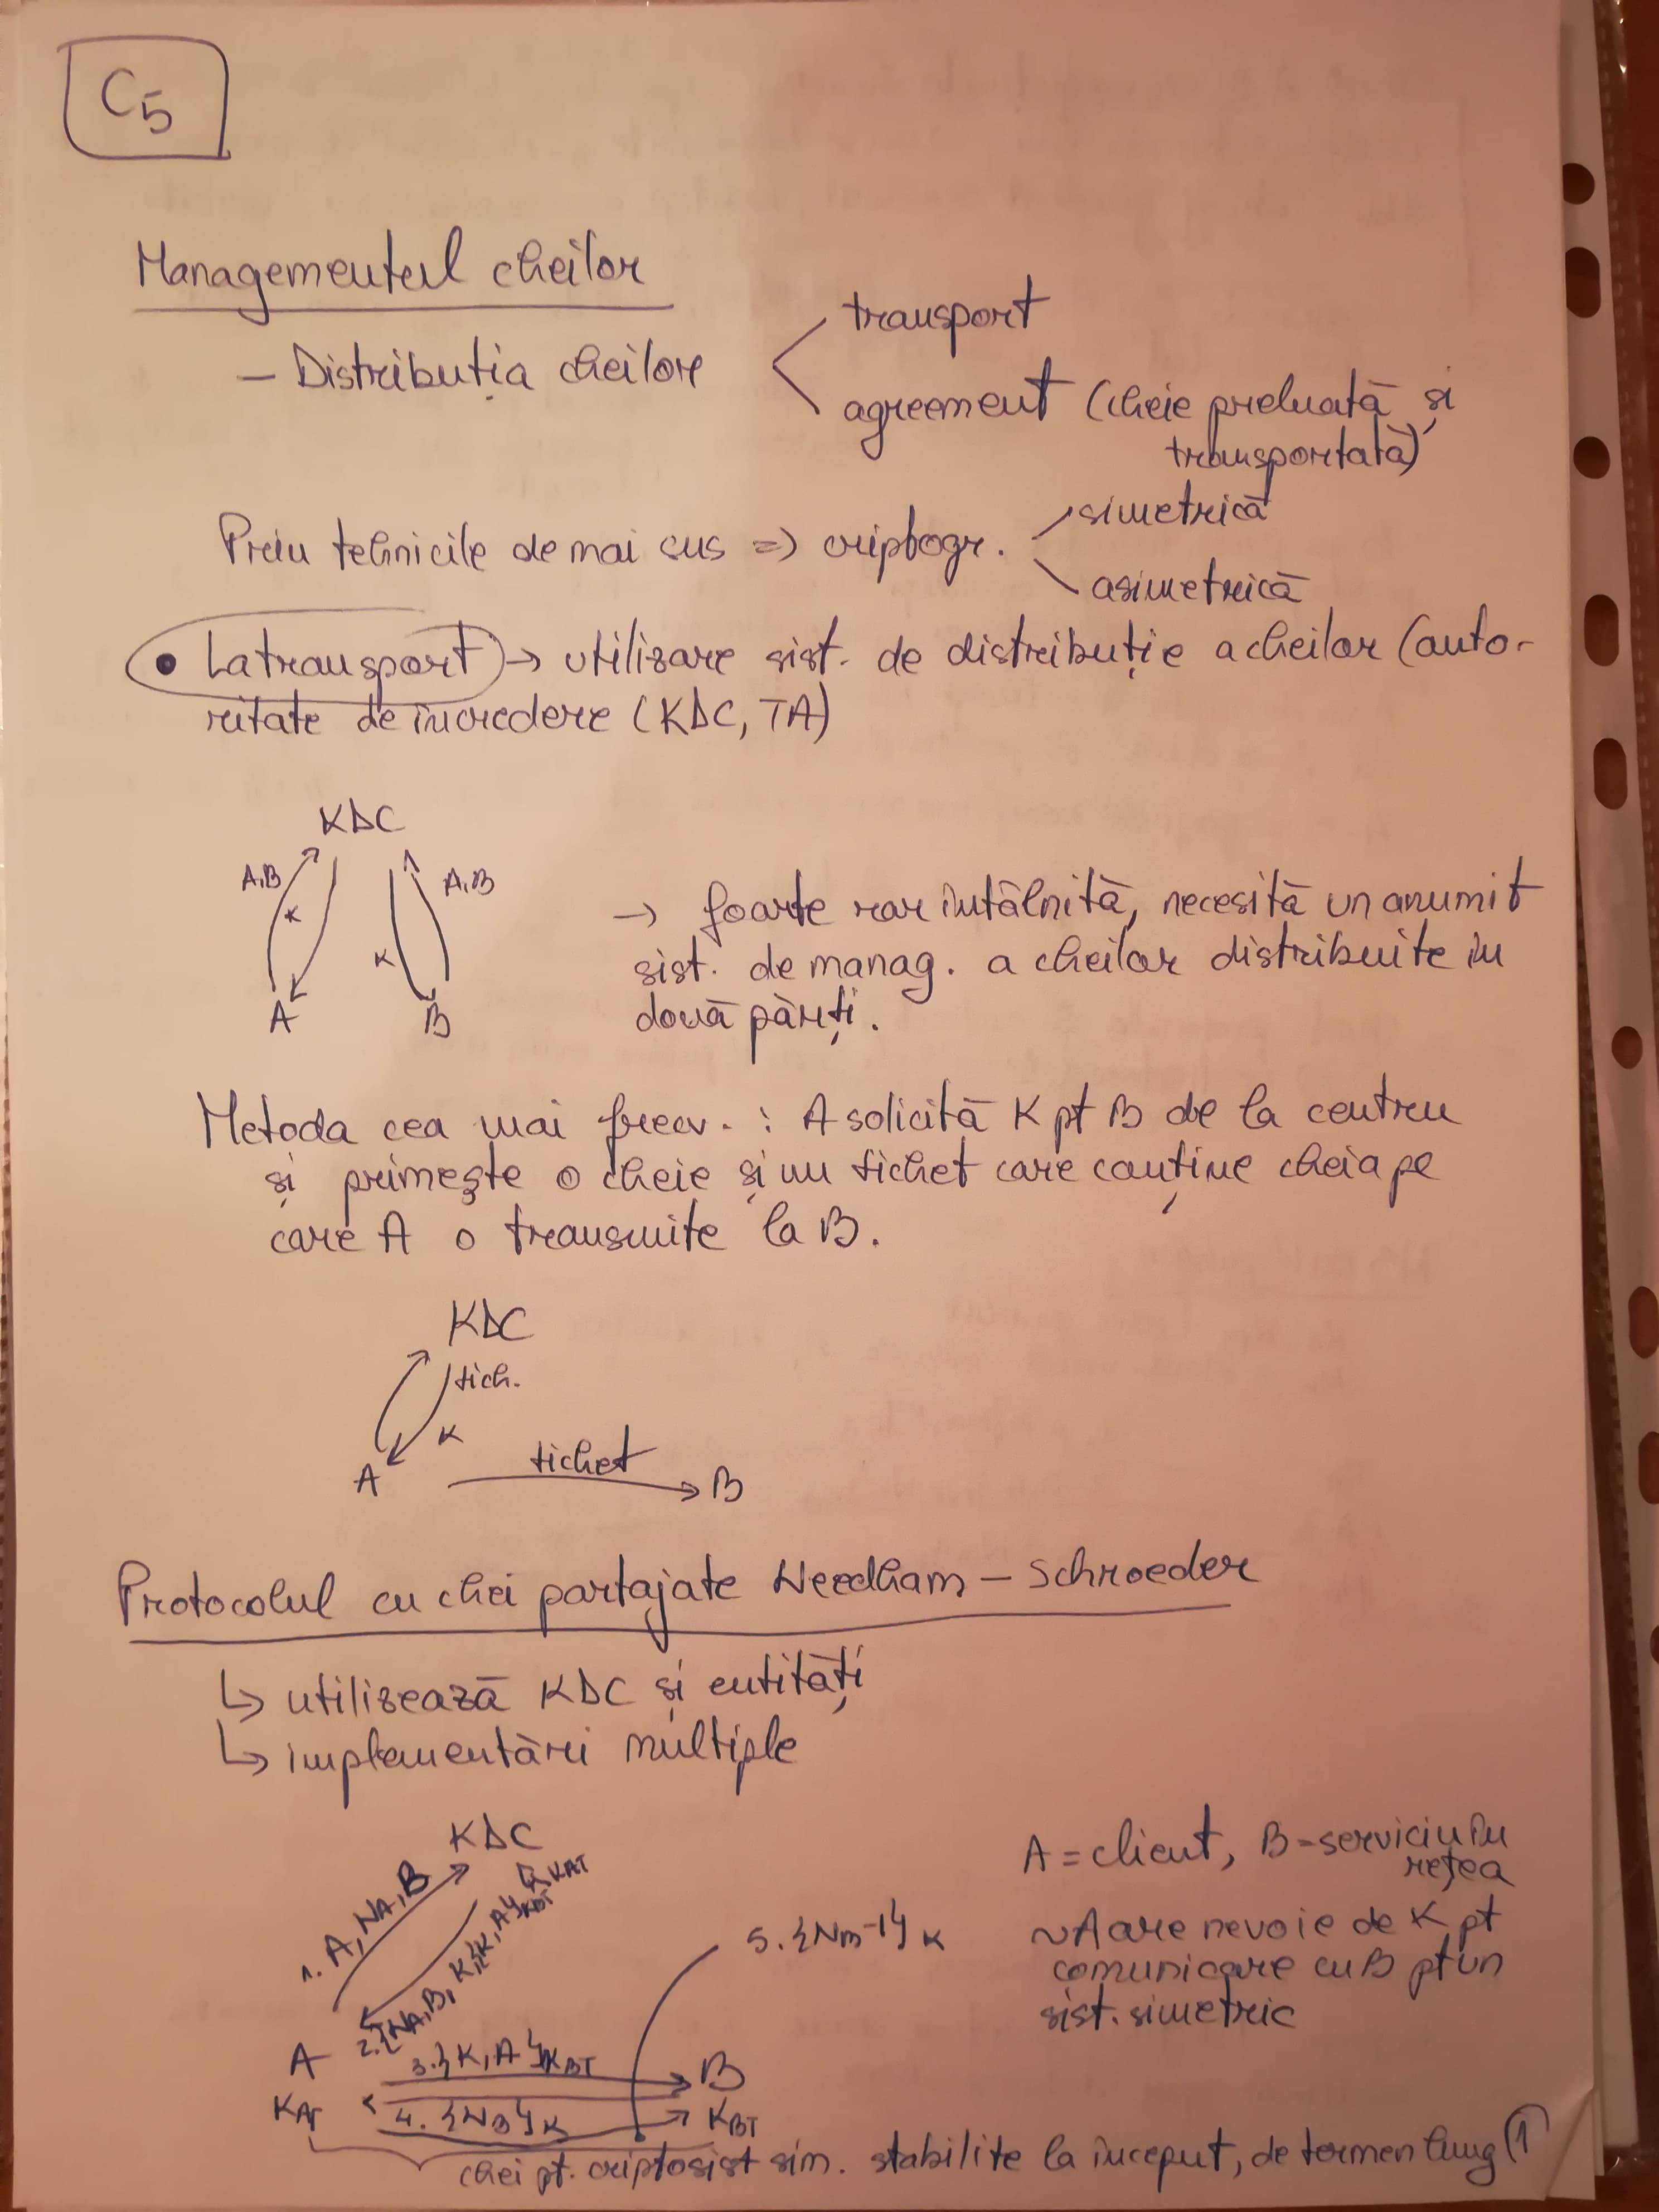 C5
Managementul cheilor
– Distribuția cheilor
transport
agreement (cheie preluată și
transportată)
Prin tehnicile de mai sus => criptogr.
simetrică
asimetrică
• La transport → utilizare sist. de distribuție a cheilor (auto-
ritate de încredere (KDC, TA)
KDC
A,B
K
K
A,B
A
B
→ foarte rar întâlnită, necesită un anumit
sist. de manag. a cheilor distribuite în
două părți.
Metoda cea mai frecv. : A solicită K pt B de la centru
și primește o cheie și un tichet care conține cheia pe
care A o transmite la B.
KDC
tich.
K
A
tichet
B
Protocolul cu chei partajate Needham – Schroeder
↳ utilizează KDC și entități
↳ implementări multiple
KDC
1. A, NA, B
2. {NA, B, K, {K, A}KBT}KAT
A
KAT
3. {K, A}KBT
4. {NB}K
B
KBT
5. {NB-1}K
A = client, B = serviciu în
rețea
~ A are nevoie de K pt
comunicare cu B pt un
sist. simetric
chei pt. criptosist sim. stabilite la început, de termen lung
1